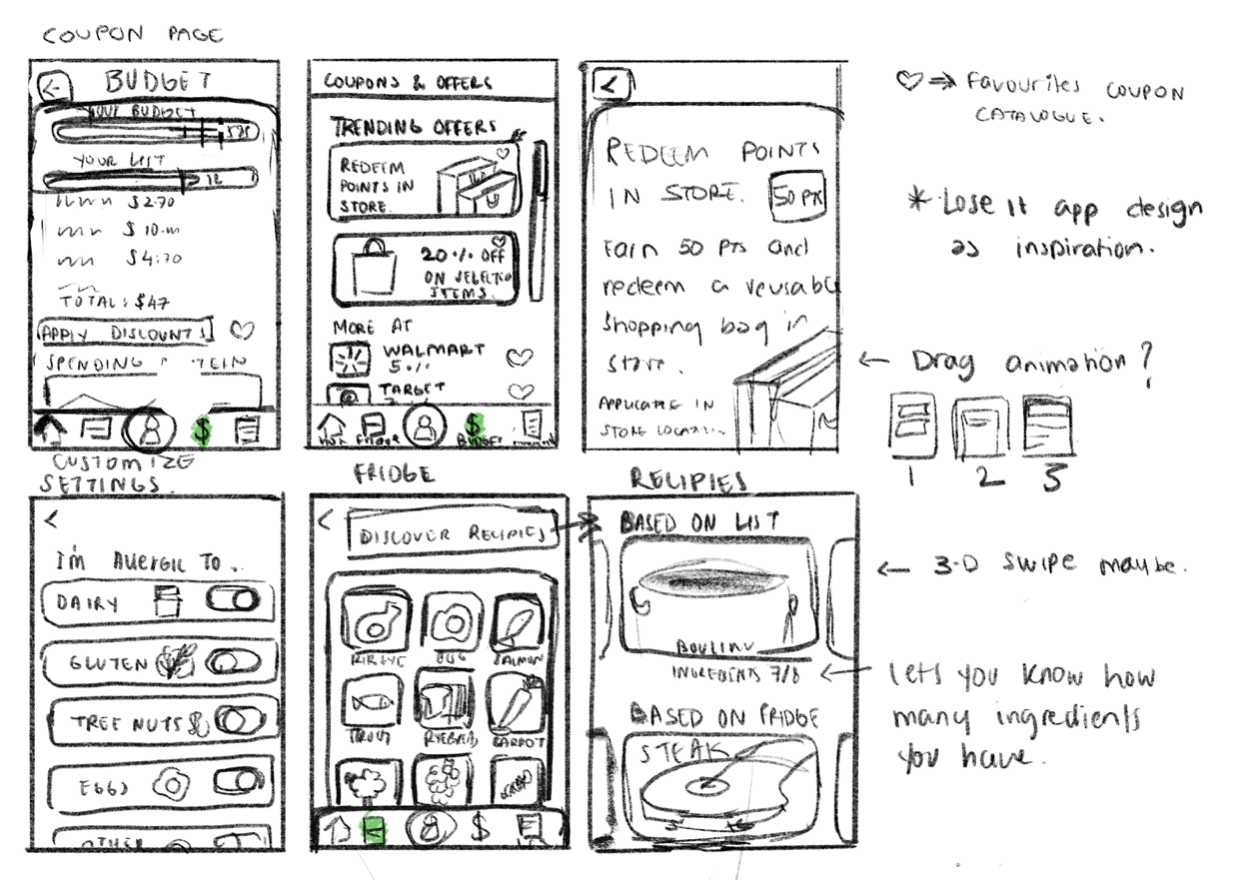 COUPON PAGE
BUDGET
YOUR BUDGET
YOUR LIST
12
$2.70
$10.
$4.70
TOTAL: $47
APPLY DISCOUNTS
SPENDING
COUPONS & OFFERS
TRENDING OFFERS
REDEEM
POINTS IN
STORE
20% OFF
ON SELECTED
ITEMS.
MORE AT
WALMART
5%
TARGET
FRIDGE
BUDGET
REDEEM POINTS
IN STORE. 50 PTS
EARN 50 PTS and
redeem a reusable
Shopping bag in
store.
APPLICABLE IN
STORE LOCATION
⇒ FAVOURITES COUPON
CATALOGUE.
* Lose It app design
as inspiration.
← Drag animation?
1 2 3
CUSTOMIZE
SETTINGS.
<
I'm Allergic To..
DAIRY
GLUTEN
TREE NUTS
EGGS
OTHER
FRIDGE
<
DISCOVER RECIPIES
RIBEYE EGG SALMON
TROUT RYEBREAD CARROT
$
RECIPIES
BASED ON LIST
INGREDIENTS 7/8
BASED ON FRIDGE
STEAK
← 3-D swipe maybe.
← lets you know how
many ingredients
you have.